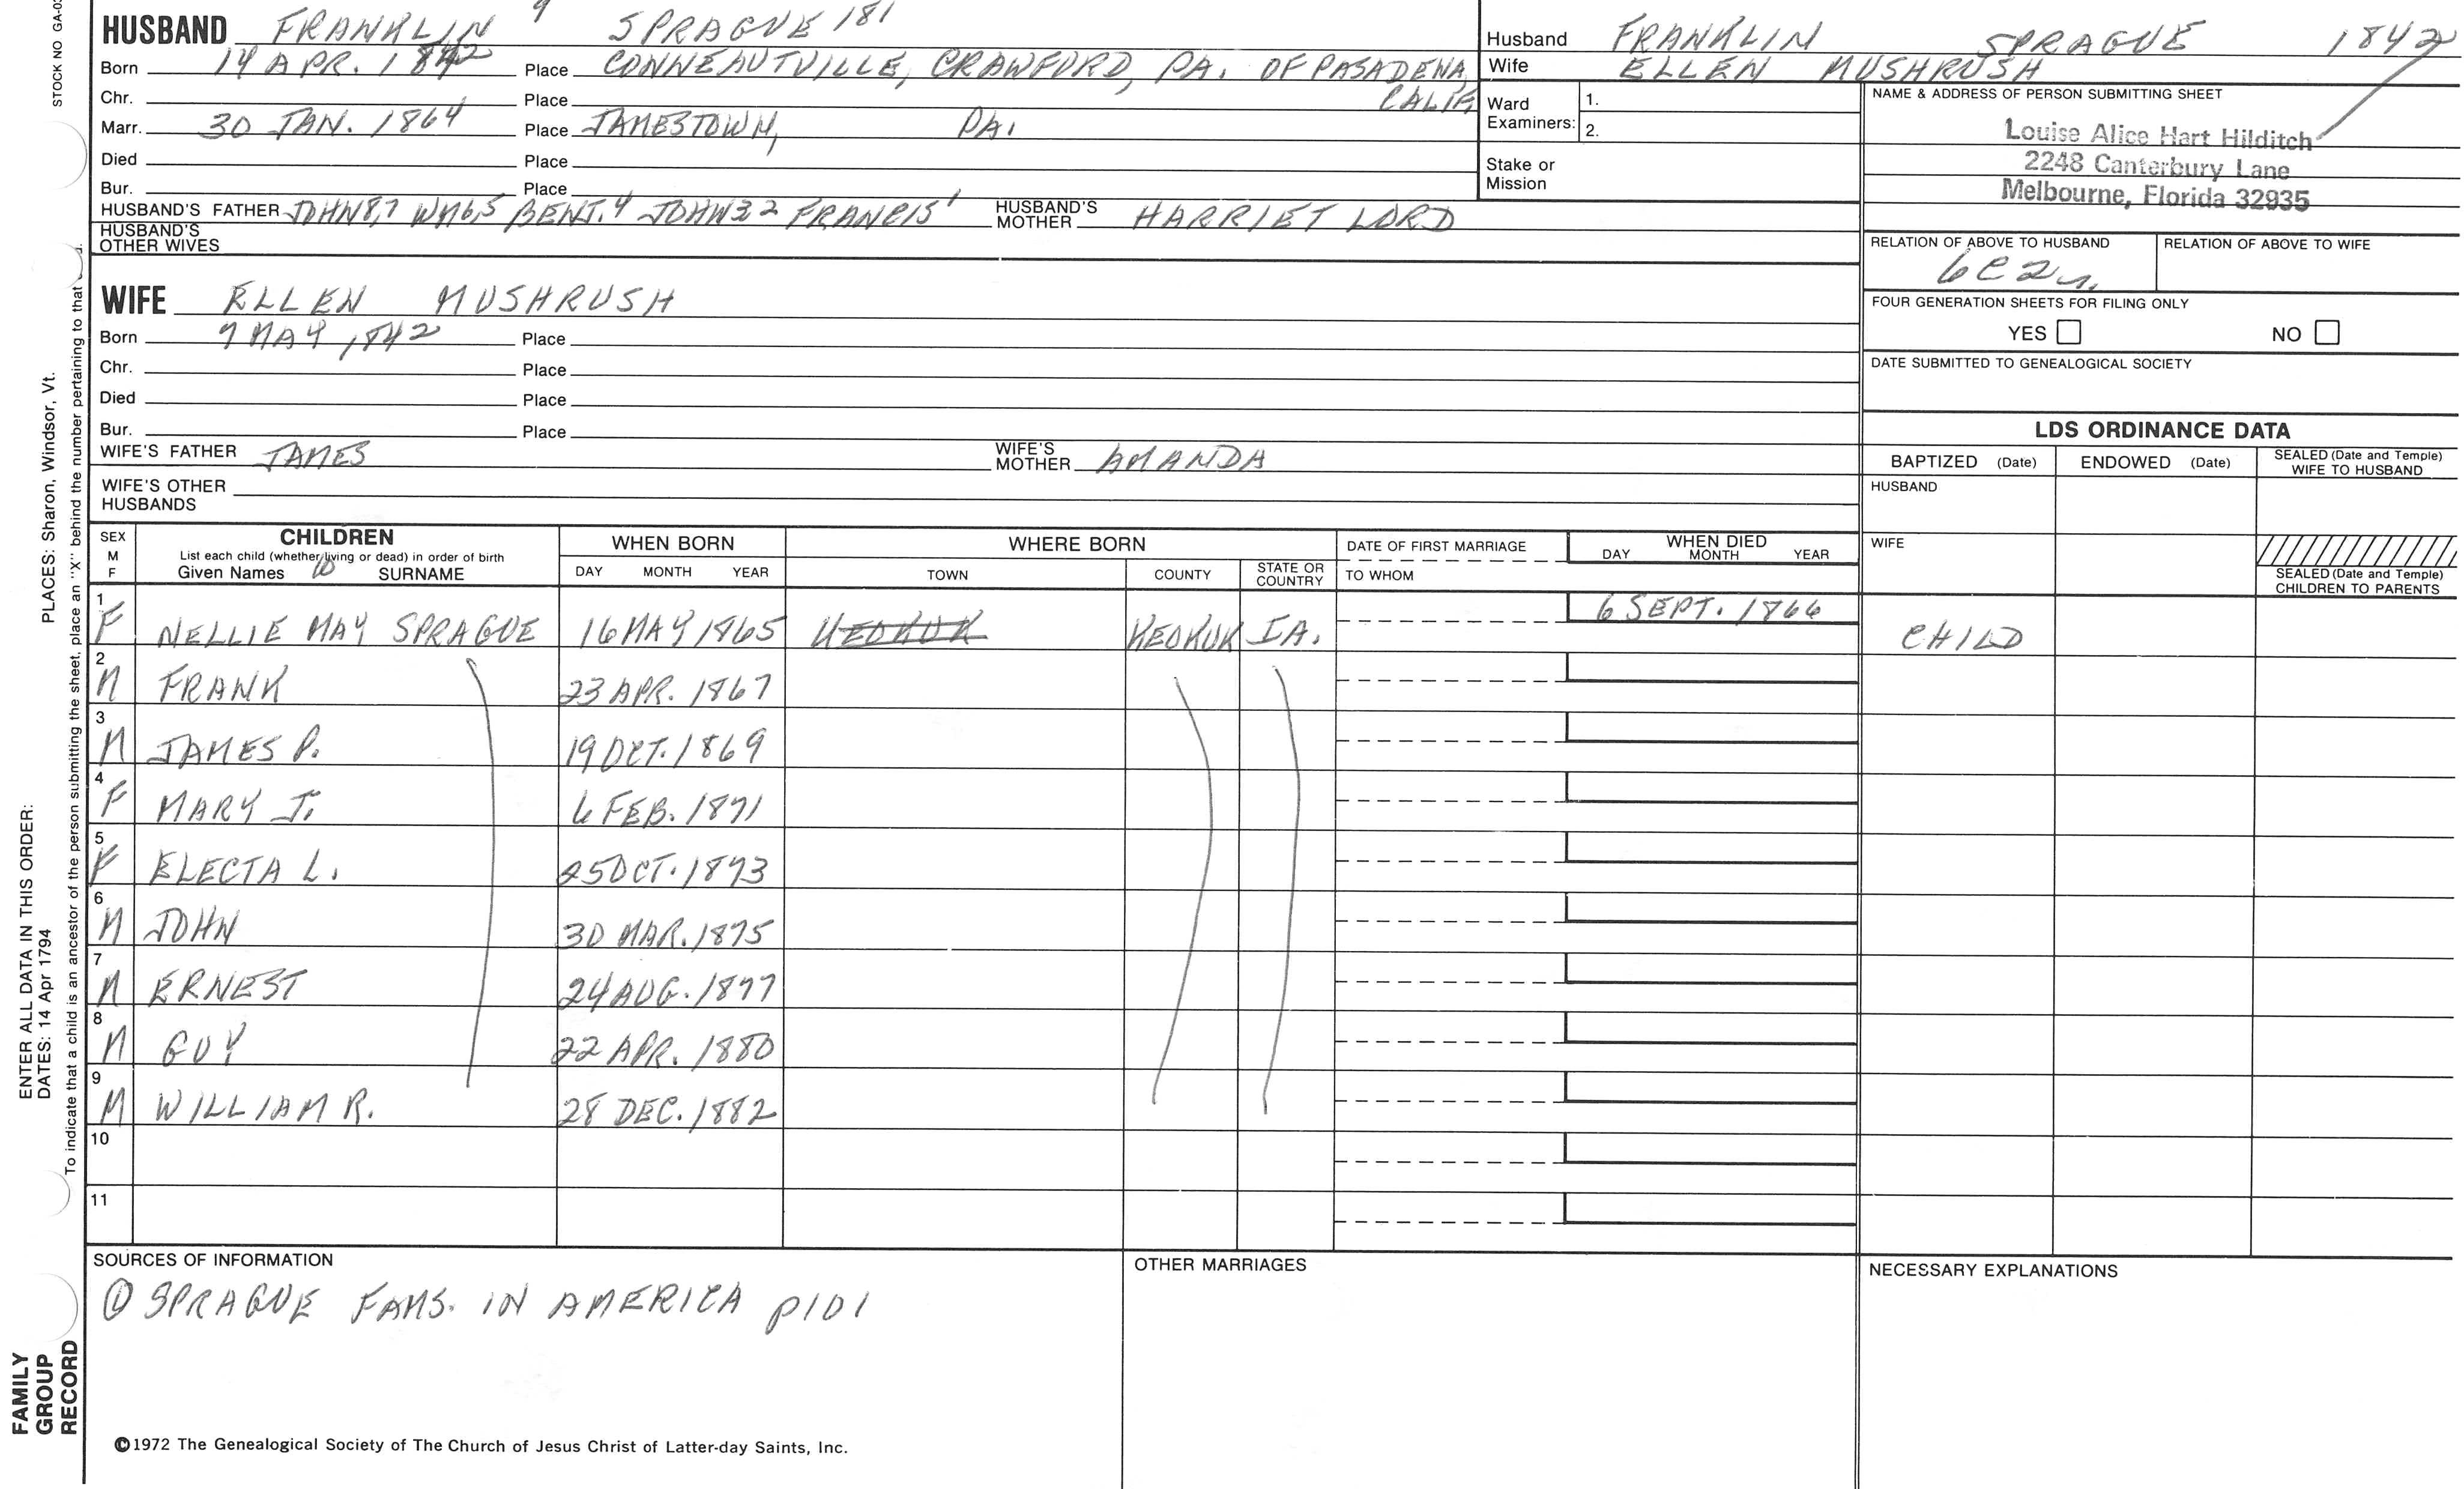 STOCK NO GA-03
HUSBAND FRANKLIN 9 SPRAGUE 181
Born 14 APR. 1842 Place CONNEAUTVILLE, CRAWFORD, PA. OF PASADENA, CALIF,
Chr. Place
Marr. 30 JAN. 1864 Place JAMESTOWN, PA.
Died Place
Bur. Place
HUSBAND'S FATHER JOHN8,7 WM6,5 BENJ.4 JOHN3 2 FRANCIS1 HUSBAND'S MOTHER HARRIET LORD
HUSBAND'S
OTHER WIVES
Husband FRANKLIN SPRAGUE 1842
Wife ELLEN MUSHRUSH
Ward
Examiners: 1.
2.
Stake or
Mission
NAME & ADDRESS OF PERSON SUBMITTING SHEET
Louise Alice Hart Hilditch
2248 Canterbury Lane
Melbourne, Florida 32935
RELATION OF ABOVE TO HUSBAND RELATION OF ABOVE TO WIFE
6C2r.
FOUR GENERATION SHEETS FOR FILING ONLY
YES NO
DATE SUBMITTED TO GENEALOGICAL SOCIETY
WIFE ELLEN MUSHRUSH
Born 9 MAY 1842 Place
Chr. Place
Died Place
Bur. Place
WIFE'S FATHER JAMES WIFE'S MOTHER AMANDA
WIFE'S OTHER
HUSBANDS
LDS ORDINANCE DATA
BAPTIZED (Date) ENDOWED (Date) SEALED (Date and Temple)
WIFE TO HUSBAND
HUSBAND
WIFE
SEALED (Date and Temple)
CHILDREN TO PARENTS
SEX
M
F
CHILDREN
List each child (whether living or dead) in order of birth
Given Names 10 SURNAME
WHEN BORN
DAY MONTH YEAR
WHERE BORN
TOWN COUNTY STATE OR COUNTRY
DATE OF FIRST MARRIAGE
TO WHOM
WHEN DIED
DAY MONTH YEAR
1 F NELLIE MAY SPRAGUE 16 MAY 1865 KEOKUK KEOKUK IA. 6 SEPT. 1866 CHILD
2 M FRANK 23 APR. 1867
3 M JAMES P. 19 OCT. 1869
4 F MARY J. 6 FEB. 1871
5 F ELECTA L. 25 OCT. 1873
6 M JOHN 30 MAR. 1875
7 M ERNEST 24 AUG. 1877
8 M GUY 22 APR. 1880
9 M WILLIAM R. 28 DEC. 1882
10
11
SOURCES OF INFORMATION
① SPRAGUE FAMS. IN AMERICA P101
OTHER MARRIAGES
NECESSARY EXPLANATIONS
©1972 The Genealogical Society of The Church of Jesus Christ of Latter-day Saints, Inc.
FAMILY
GROUP
RECORD
ENTER ALL DATA IN THIS ORDER:
DATES: 14 Apr 1794 PLACES: Sharon, Windsor, Vt.
To indicate that a child is an ancestor of the person submitting the sheet, place an "X" behind the number pertaining to that